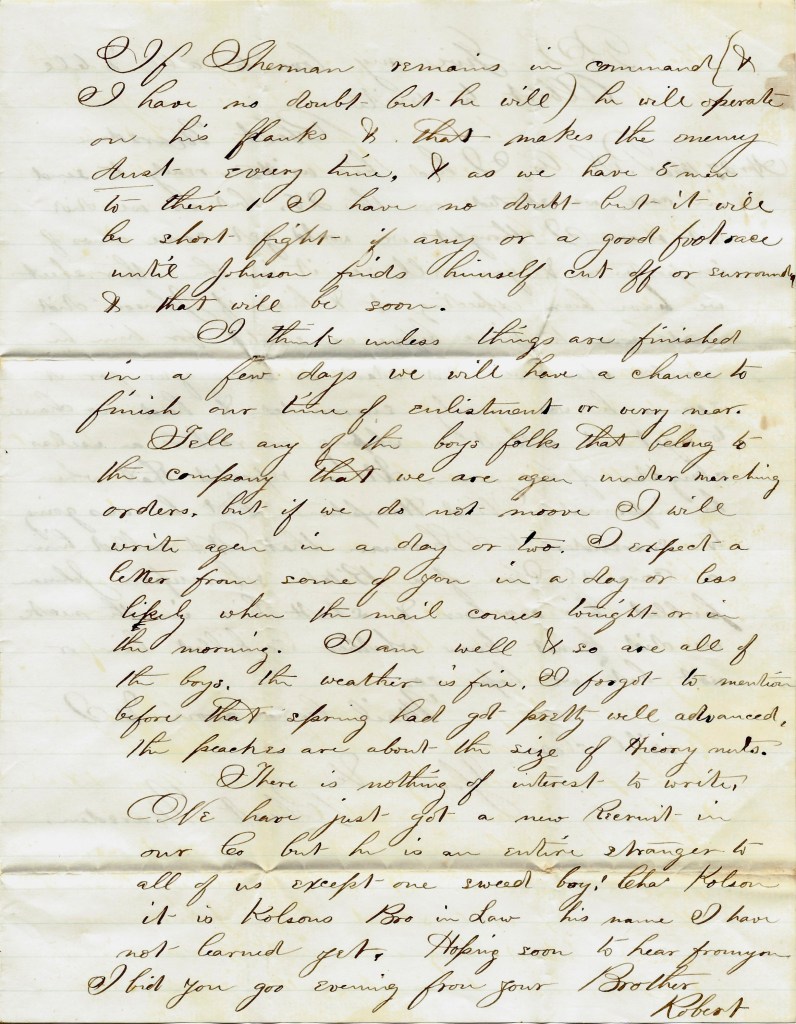 If Sherman remains in command (&
I have no doubt but he will) he will operate
on his flanks & that makes the enemy
dust every time, & as we have 5 men
to their 1 I have no doubt but it will
be short fight if any or a good foot race
until Johnson finds himself cut off or surround
& that will be soon.
I think unless things are finished
in a few days we will have a chance to
finish our time of enlistment or very near.
Tell any of the boys folks that belong to
the company that we are agen under marching
orders. but if we do not moove I will
write agen in a day or two. I expect a
letter from some of you in a day or less
likely when the mail comes tonight or in
the morning. I am well & so are all of
the boys. the weather is fine. I forgot to mention
before that spring had got pretty well advanced,
the peaches are about the size of Hicory nuts.
There is nothing of interest to write,
We have just got a new Recruit in
our Co but he is an entire stranger to
all of us except one sweed boy! Chas Kolson
it is Kolsons Bro in Law his name I have
not learned yet. Hoping soon to hear from you
I bid you goo evening from your Brother
Robert